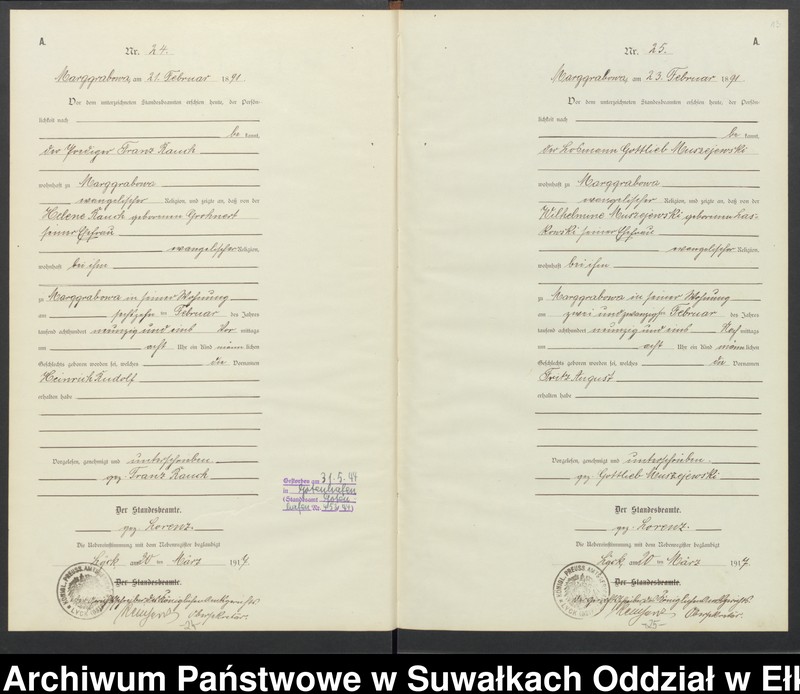 A.
Nr. 24.
Marggrabowa, am 21. Februar 1891
Vor dem unterzeichneten Standesbeamten erschien heute, der Persön-
lichkeit nach
be kannt,
der Prediger Franz Rauch
wohnhaft zu Marggrabowa
evangelischer Religion, und zeigte an, daß von der
Helene Rauch geborenen Grohnert
seiner Ehefrau
evangelischer Religion,
wohnhaft bei ihm
zu Marggrabowa in seiner Wohnung
am sechszehn ten Februar des Jahres
tausend achthundert neunzig und eins Vor mittags
um acht Uhr ein Kind männ lichen
Geschlechts geboren worden sei, welches die Vornamen
Heinrich Rudolf
erhalten habe
Vorgelesen, genehmigt und unterschrieben
gez. Franz Rauch
Der Standesbeamte.
gez. Lorenz.
Die Uebereinstimmung mit dem Nebenregister beglaubigt
Lyck, am 20 ten März 1917.
Der Standesbeamte.
Der Gerichtsschreiber des Königlichen Amtsgerichts
Obersekretär.
-24-
Gestorben am 31.5.44
in Gotenhafen
(Standesamt Goten
hafen Nr.
KÖNIGL. PREUSS. AMTSGERICHT
LYCK
A.
Nr. 25.
Marggrabowa, am 23. Februar 1891
Vor dem unterzeichneten Standesbeamten erschien heute, der Persön-
lichkeit nach
be kannt,
der Losmann Gottlieb Murzejewski
wohnhaft zu Marggrabowa
evangelischer Religion, und zeigte an, daß von der
Wilhelmine Murzejewski geborenen Las-
kowski seiner Ehefrau
evangelischer Religion,
wohnhaft bei ihm
zu Marggrabowa in seiner Wohnung
am zwei und zwanzigsten Februar des Jahres
tausend achthundert neunzig und eins Nach mittags
um acht Uhr ein Kind männ lichen
Geschlechts geboren worden sei, welches die Vornamen
Fritz August
erhalten habe
Vorgelesen, genehmigt und unterschrieben.
gez. Gottlieb Murzejewski
Der Standesbeamte.
gez. Lorenz.
Die Uebereinstimmung mit dem Nebenregister beglaubigt
Lyck, am 20 ten März 1917.
Der Standesbeamte.
Der Gerichtsschreiber des Königlichen Amtsgerichts
Obersekretär.
-25-
KÖNIGL. PREUSS. AMTSGERICHT
LYCK
Archiwum Państwowe w Suwałkach Oddział w Eł